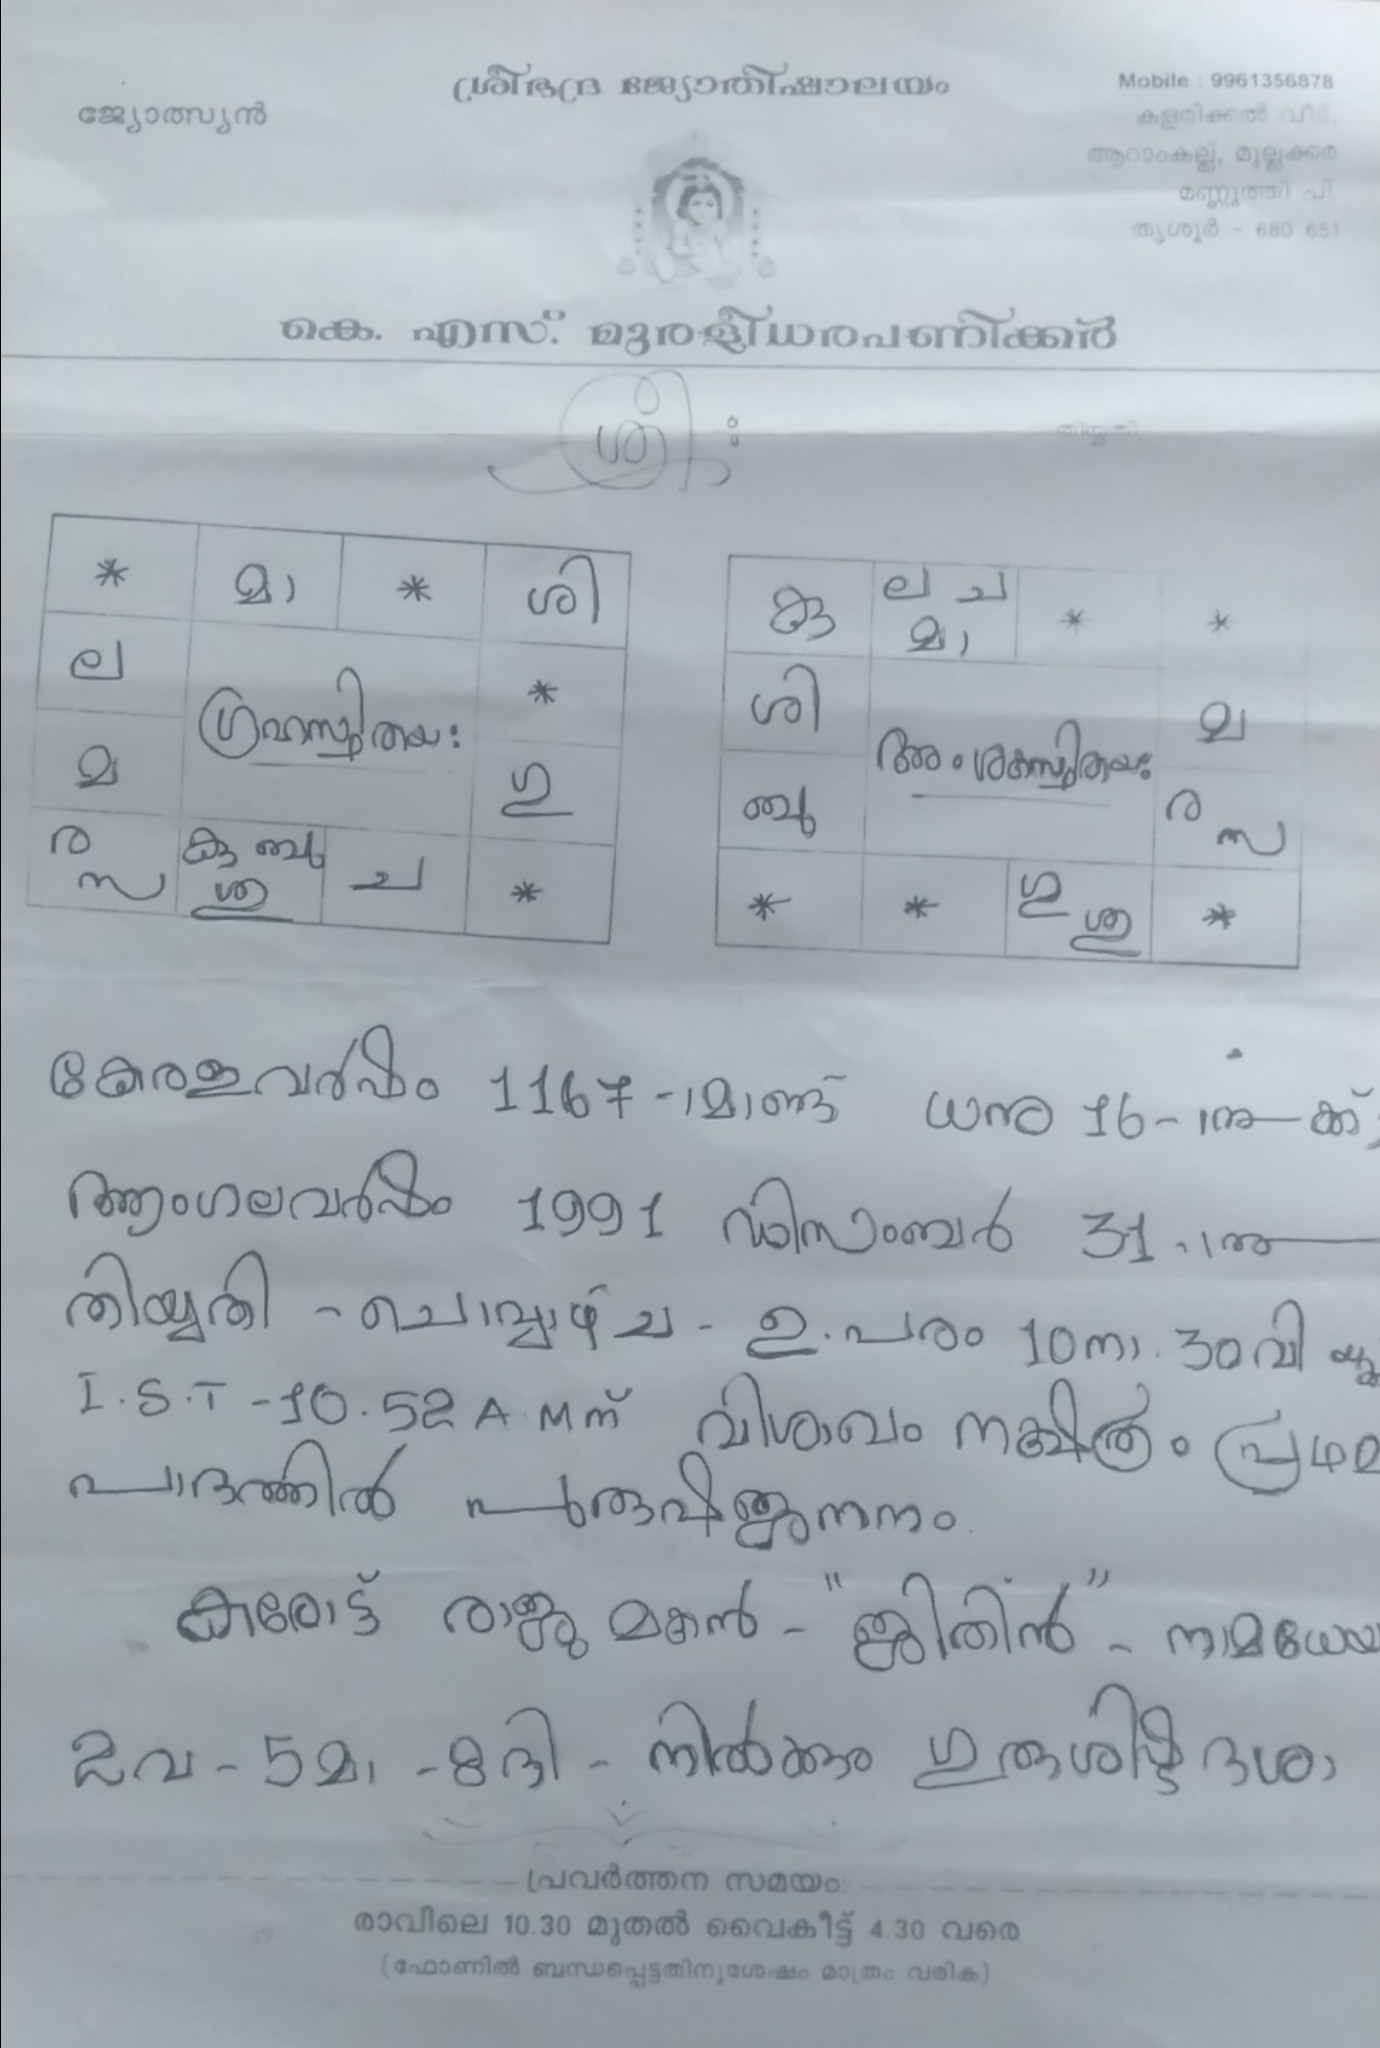 ശ്രീഭദ്ര ജ്യോതിഷാലയം
ജ്യോത്സ്യൻ
Mobile : 9961356878
കളരിക്കൽ വീട്,
ആറാംകല്ല്, മുല്ലക്കര
മണ്ണുത്തി പി.
തൃശൂർ - 680 651
കെ. എസ്. മുരളീധരപണിക്കർ
ശ്രീ:
തിയ്യതി
* മാ * ശി
ല *
ഗ്രഹസ്ഥിതയഃ
മ ഗു
ര സ കു ബു ശു ച *
കു ല ച മാ * *
ശി മ
അംശകസ്ഥിതയഃ
ബു ര സ
* * ഗു ശു *
കേരളവർഷം 1167-ാമാണ്ട് ധനു 16-ാം നു-ക്ക്
ആംഗലവർഷം 1991 ഡിസംബർ 31-ാം
തിയ്യതി - ചൊവ്വാഴ്ച - ഉ.പരം 10നാ. 30വി
I.S.T - 10.52 A.M ന് വിശാഖം നക്ഷത്രം പ്രഥമ
പാദത്തിൽ പുരുഷജനനം.
കരോട്ട് രാജു മകൻ - "ജിതിൻ" - നാമധേയ
2വ - 5മാ - 8ദി - നിൽക്കും ഗുരുശിഷ്ട ദശാ
പ്രവർത്തന സമയം:
രാവിലെ 10.30 മുതൽ വൈകീട്ട് 4.30 വരെ
(ഫോണിൽ ബന്ധപ്പെട്ടതിനുശേഷം മാത്രം വരിക)